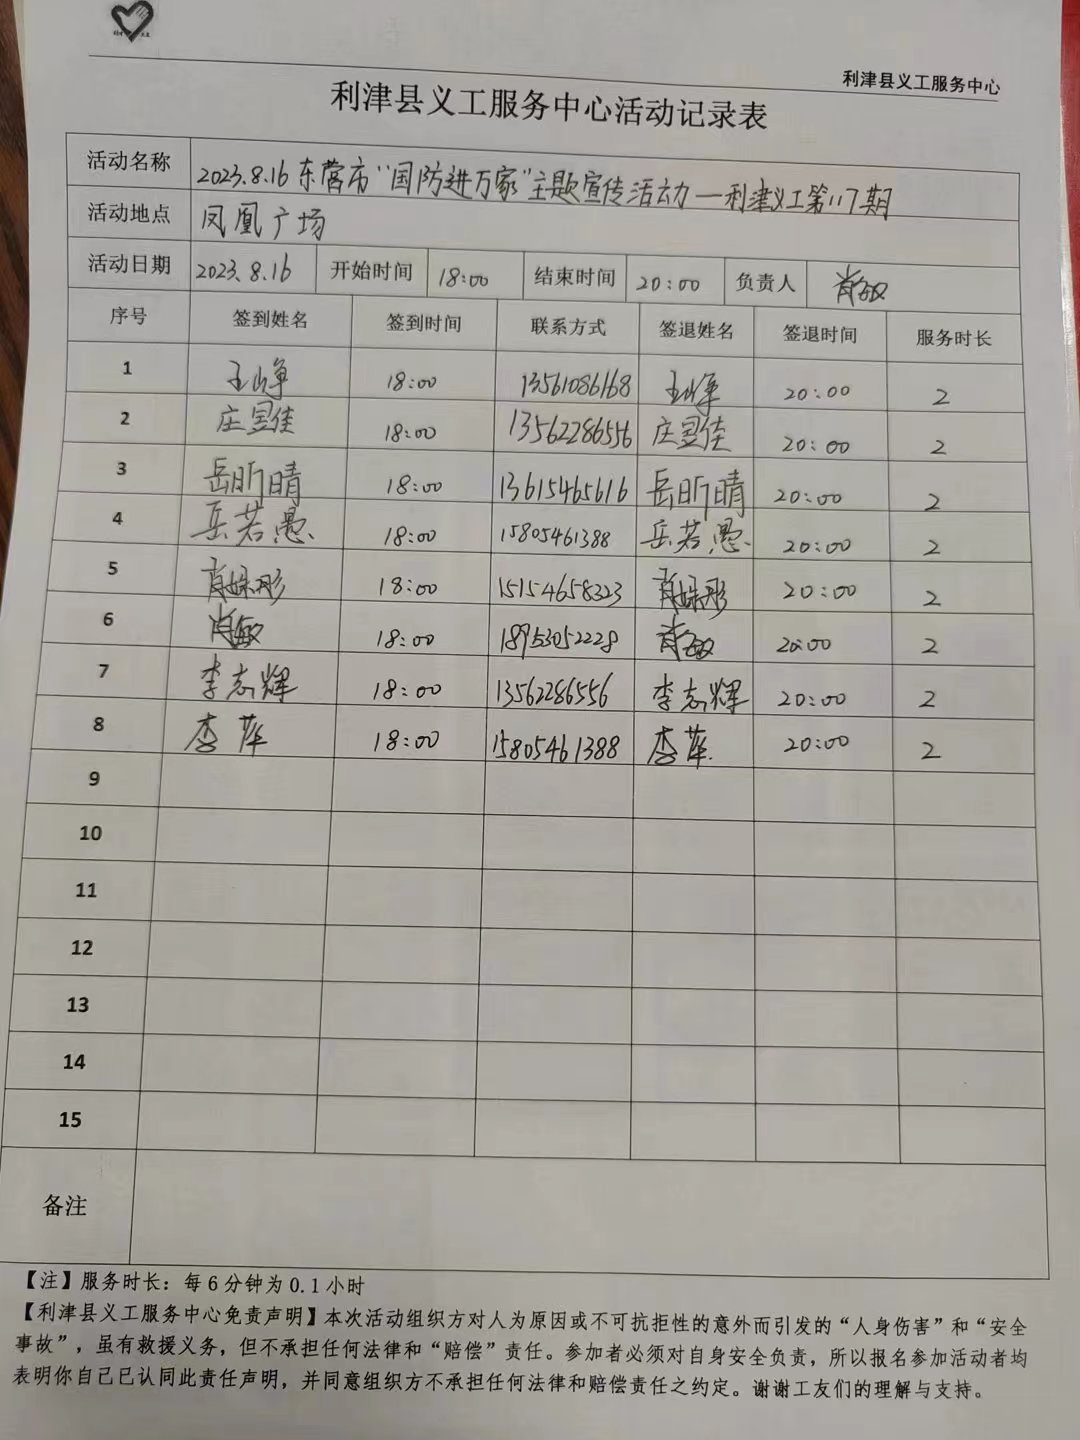 利津县义工服务中心
利津县义工服务中心活动记录表
活动名称 2023.8.16东营市“国防进万家”主题宣传活动—利津义工第117期
活动地点 凤凰广场
活动日期 2023.8.16 开始时间 18:00 结束时间 20:00 负责人 肖敏
序号 签到姓名 签到时间 联系方式 签退姓名 签退时间 服务时长
1 王峥 18:00 13561086168 王峥 20:00 2
2 18:00 13562286556 20:00 2
3 岳昕晴 18:00 13615465616 岳昕晴 20:00 2
4 岳若愚 18:00 15805461388 岳若愚 20:00 2
5 18:00 15154658323 20:00 2
6 肖敏 18:00 18953052228 肖敏 20:00 2
7 李志辉 18:00 13562286556 李志辉 20:00 2
8 李萍 18:00 15805461388 李萍 20:00 2
9
10
11
12
13
14
15
备注
【注】服务时长：每6分钟为0.1小时
【利津县义工服务中心免责声明】本次活动组织方对人为原因或不可抗拒性的意外而引发的“人身伤害”和“安全
事故”，虽有救援义务，但不承担任何法律和“赔偿”责任。参加者必须对自身安全负责，所以报名参加活动者均
表明你自己已认同此责任声明，并同意组织方不承担任何法律和赔偿责任之约定。谢谢工友们的理解与支持。